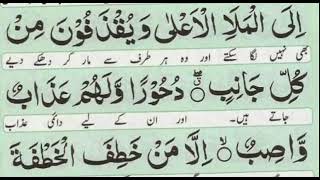 اِلَى الْمَلَاِ الْاَعْلٰى وَيُقْذَفُوْنَ مِنْ
بھی نہیں لگا سکتے اور وہ ہر طرف سے مار کر دھکے دیے
كُلِّ جَانِبٍ ۝ دُحُوْرًا وَّلَهُمْ عَذَابٌ
جاتے ہیں۔ اور ان کے لیے دائمی عذاب
وَّاصِبٌ ۝ اِلَّا مَنْ خَطِفَ الْخَطْفَةَ